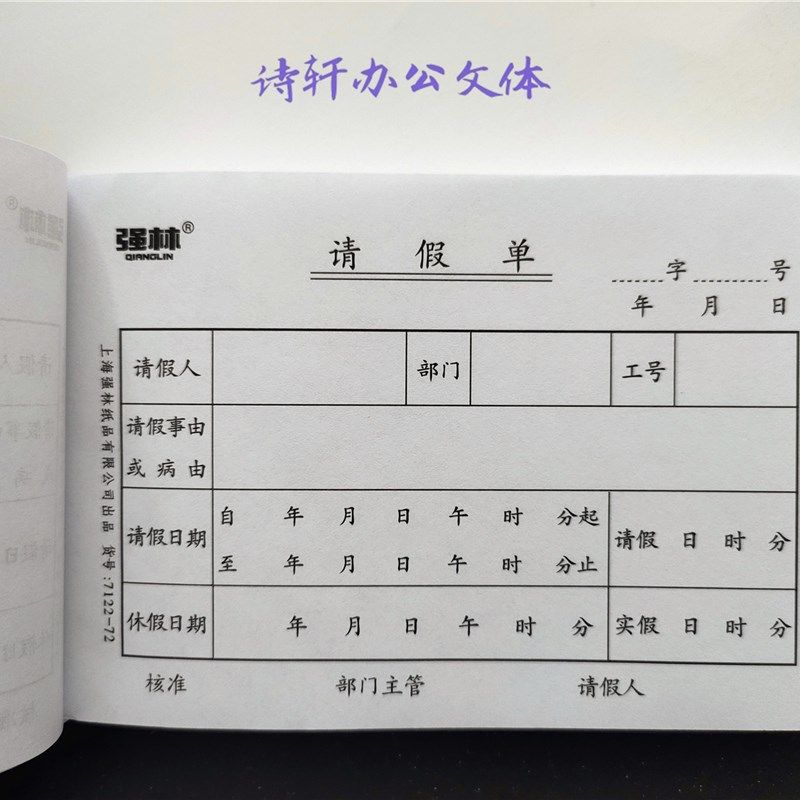 诗轩办公文体
强林®
QIANGLIN
请假单
字 号
年 月 日
请假人 部门 工号
请假事由
或病由
请假日期 自 年 月 日 午 时 分起
至 年 月 日 午 时 分止
请假 日 时 分
休假日期 年 月 日 午 时 分 实假 日 时 分
核准 部门主管 请假人
上海强林纸品有限公司出品 货号:7122-72